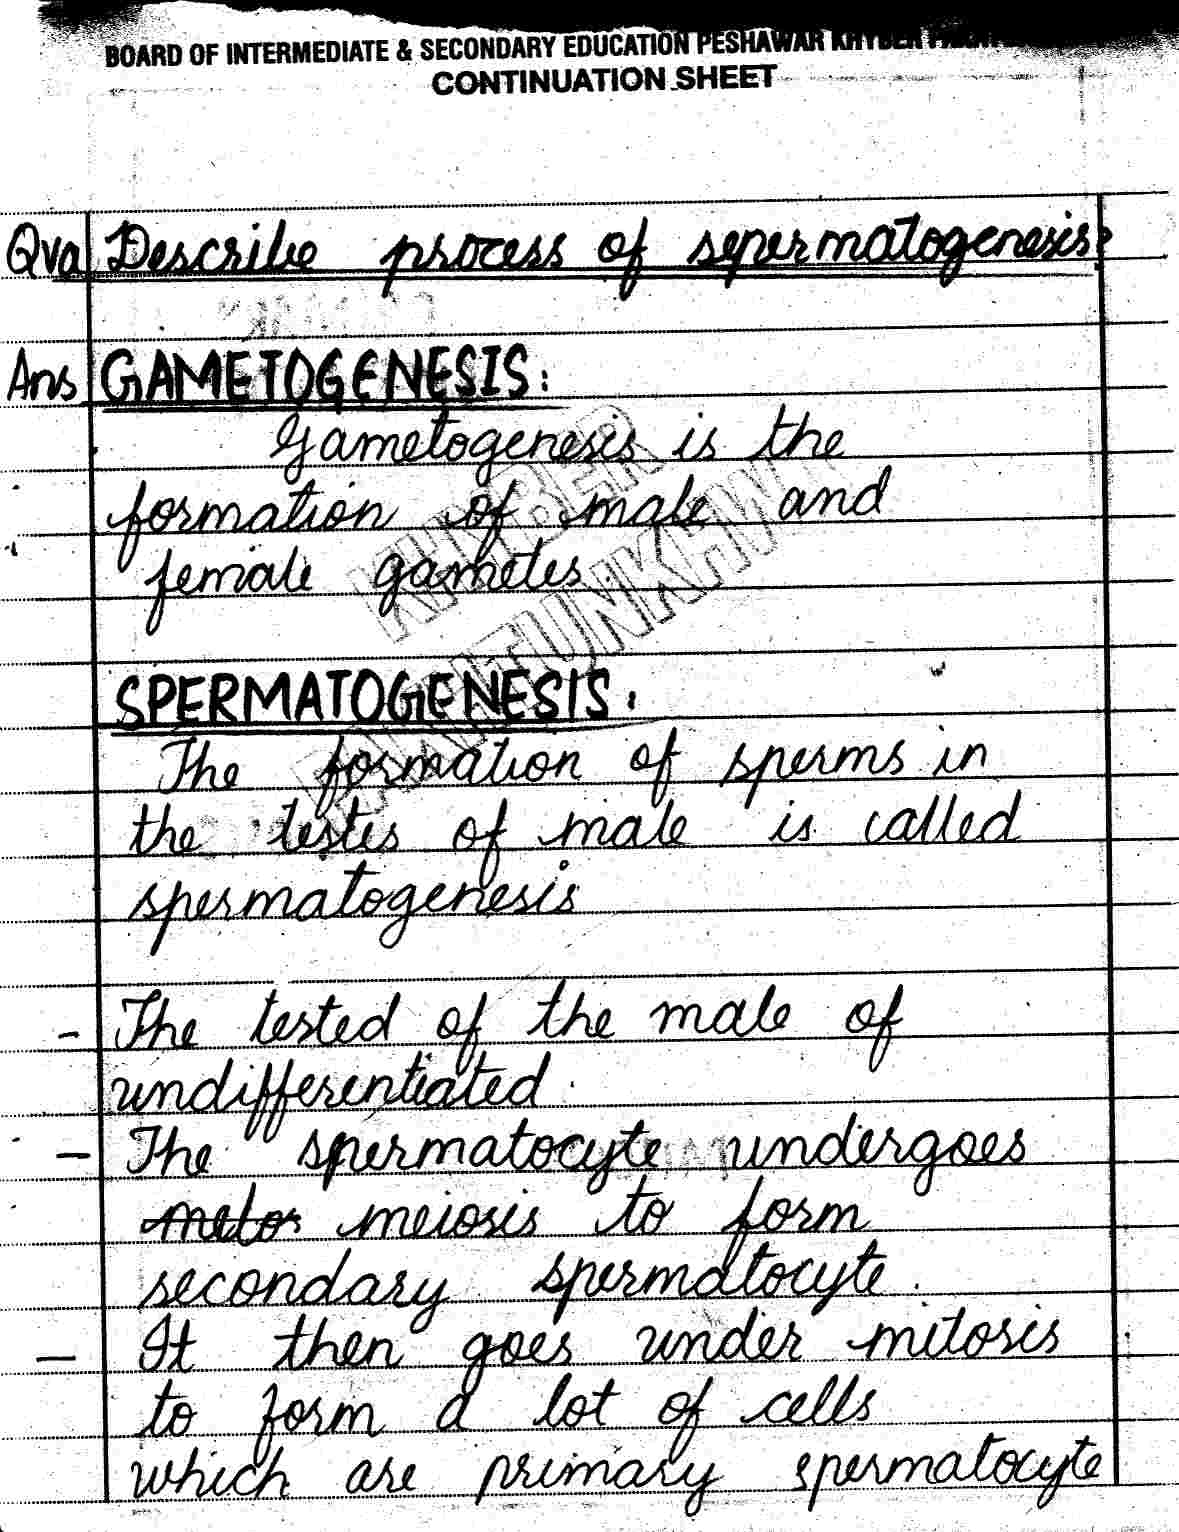 BOARD OF INTERMEDIATE & SECONDARY EDUCATION PESHAWAR KHYBER
CONTINUATION SHEET
Qva Describe process of sepermatogenesis?
Ans GAMETOGENESIS:
Gametogenesis is the
formation of male and
female gametes
KHYBER
PAKHTUNKHWA
SPERMATOGENESIS:
The formation of sperms in
the testes of male is called
spermatogenesis
- The tested of the male of
undifferentiated.
- The spermatocyte undergoes
meiosis to form
secondary spermatocyte.
- It then goes under mitosis
to form a lot of cells
which are primary spermatocyte